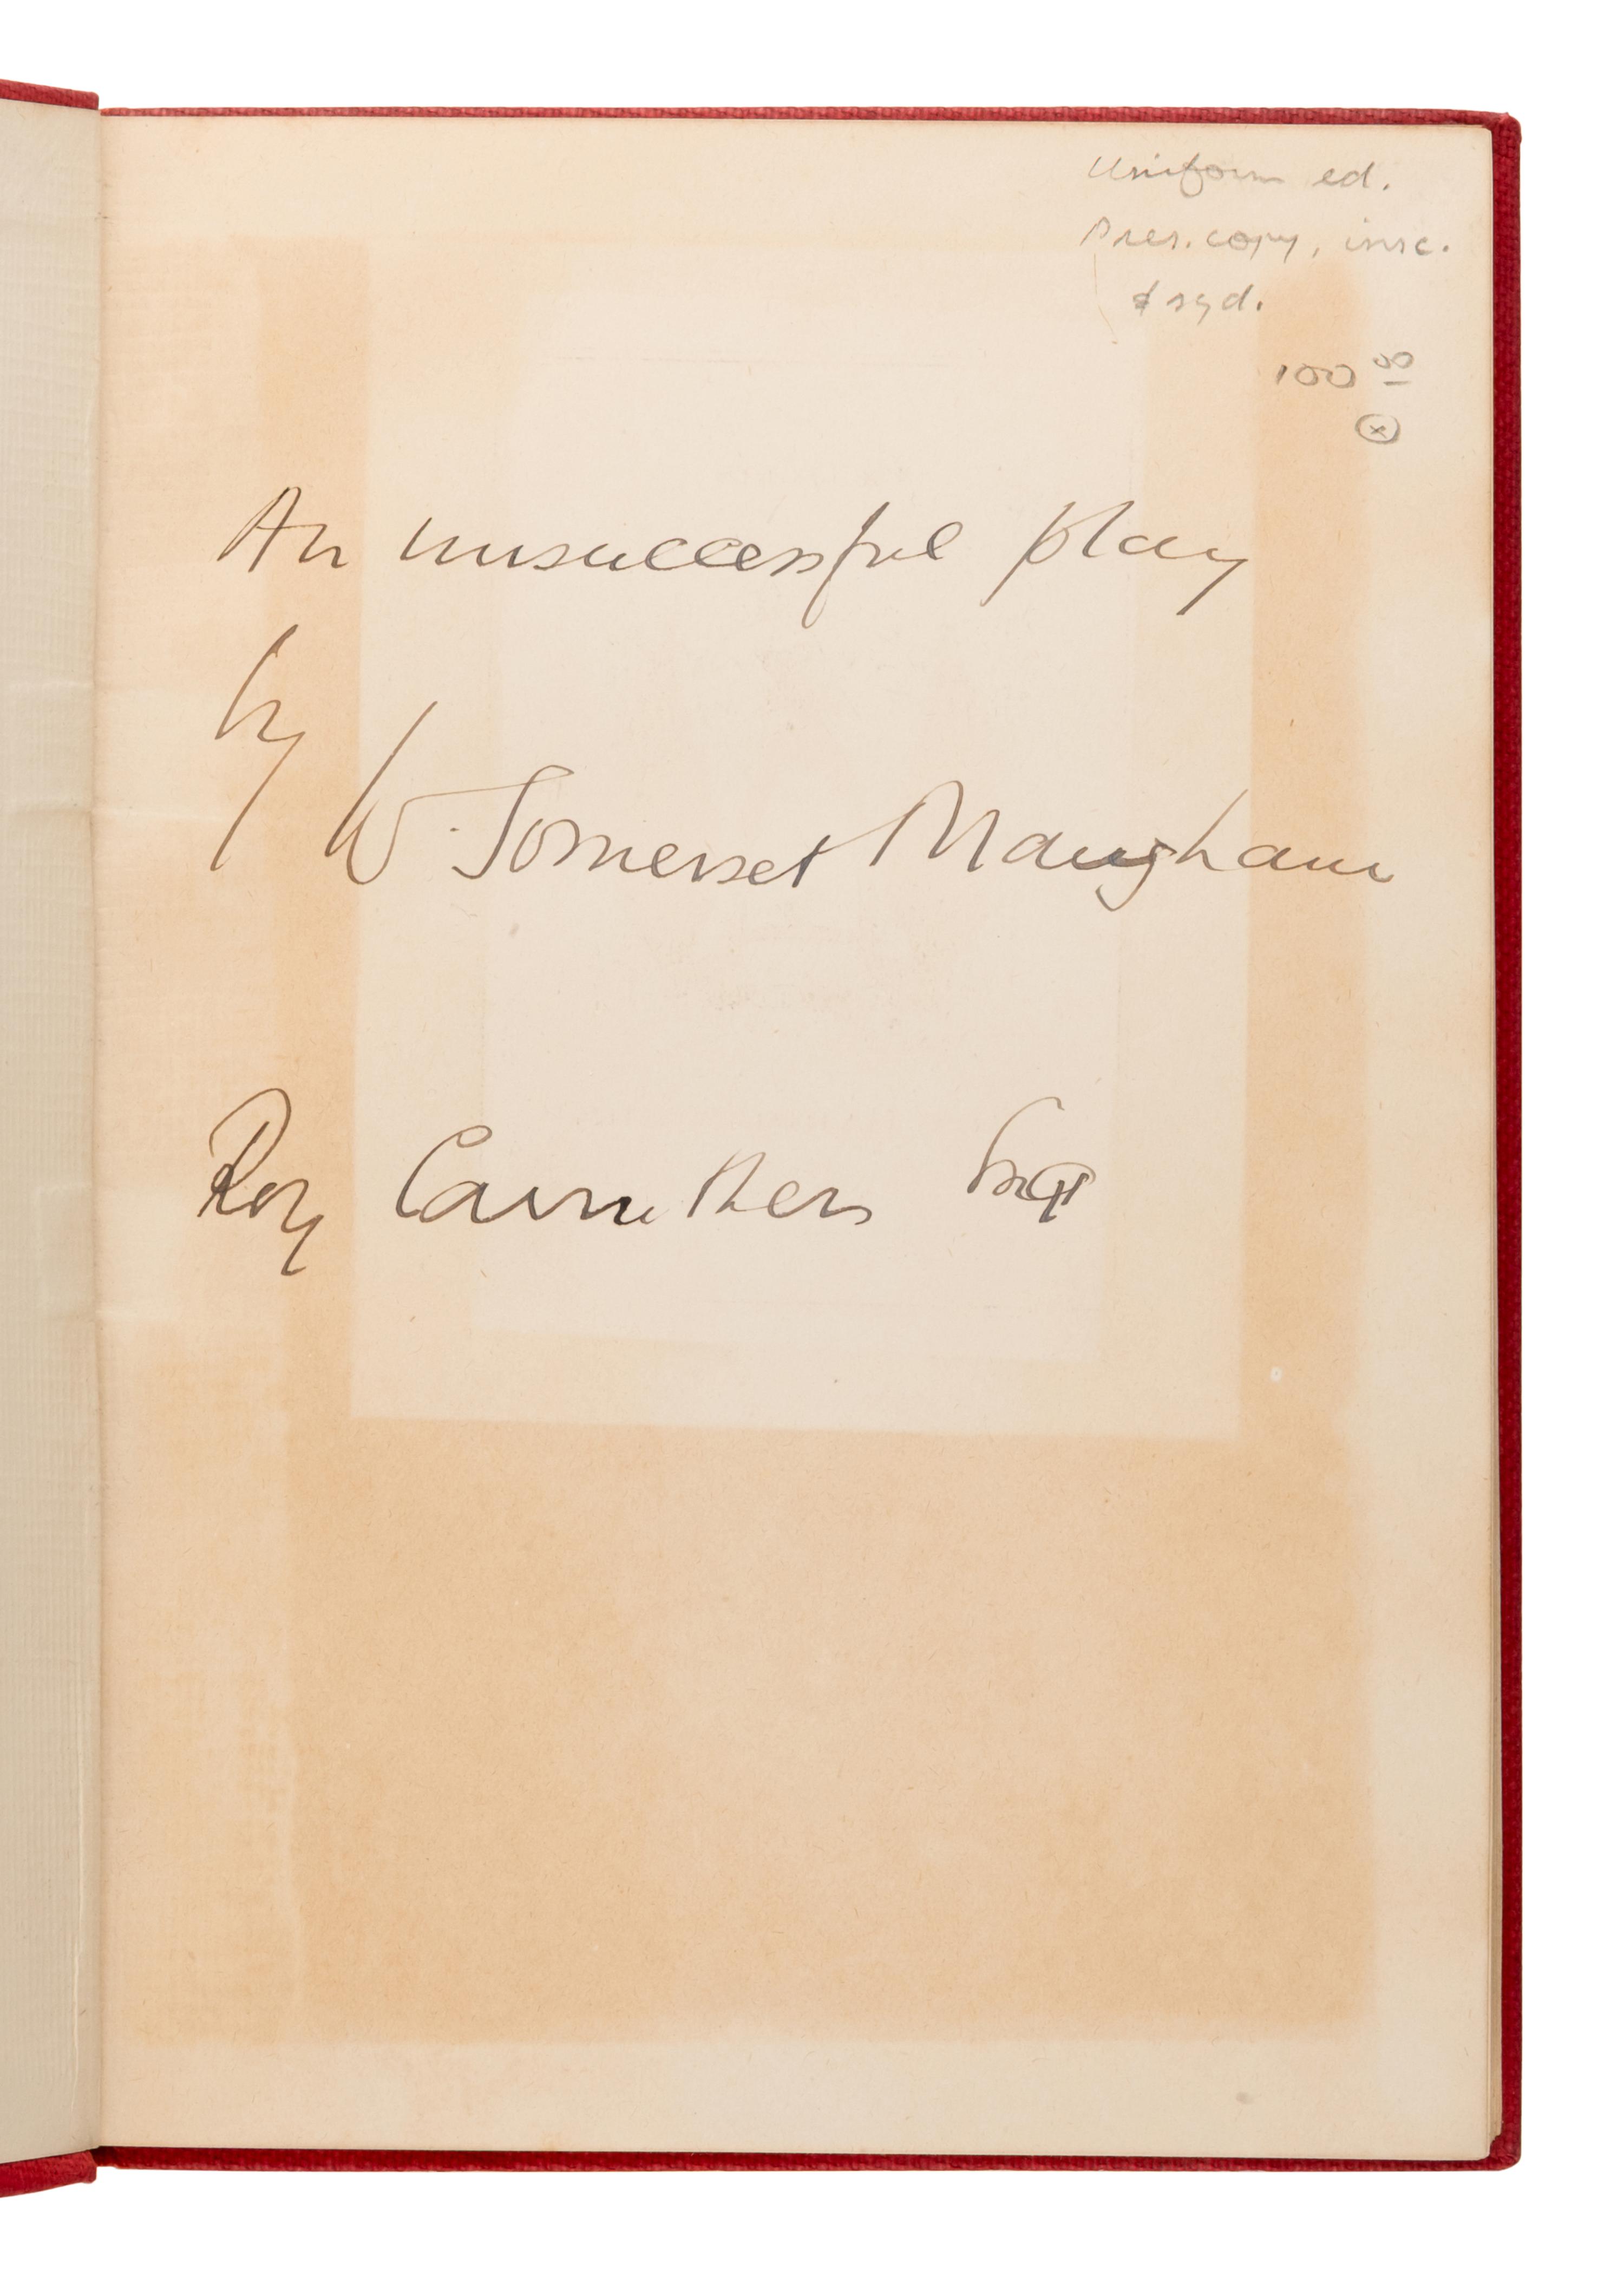 Uniform ed.
Pres. copy, insc.
& sgd.
100 00
An unsuccessful play
by
W. Somerset Maugham
Roy Carruthers Esqr